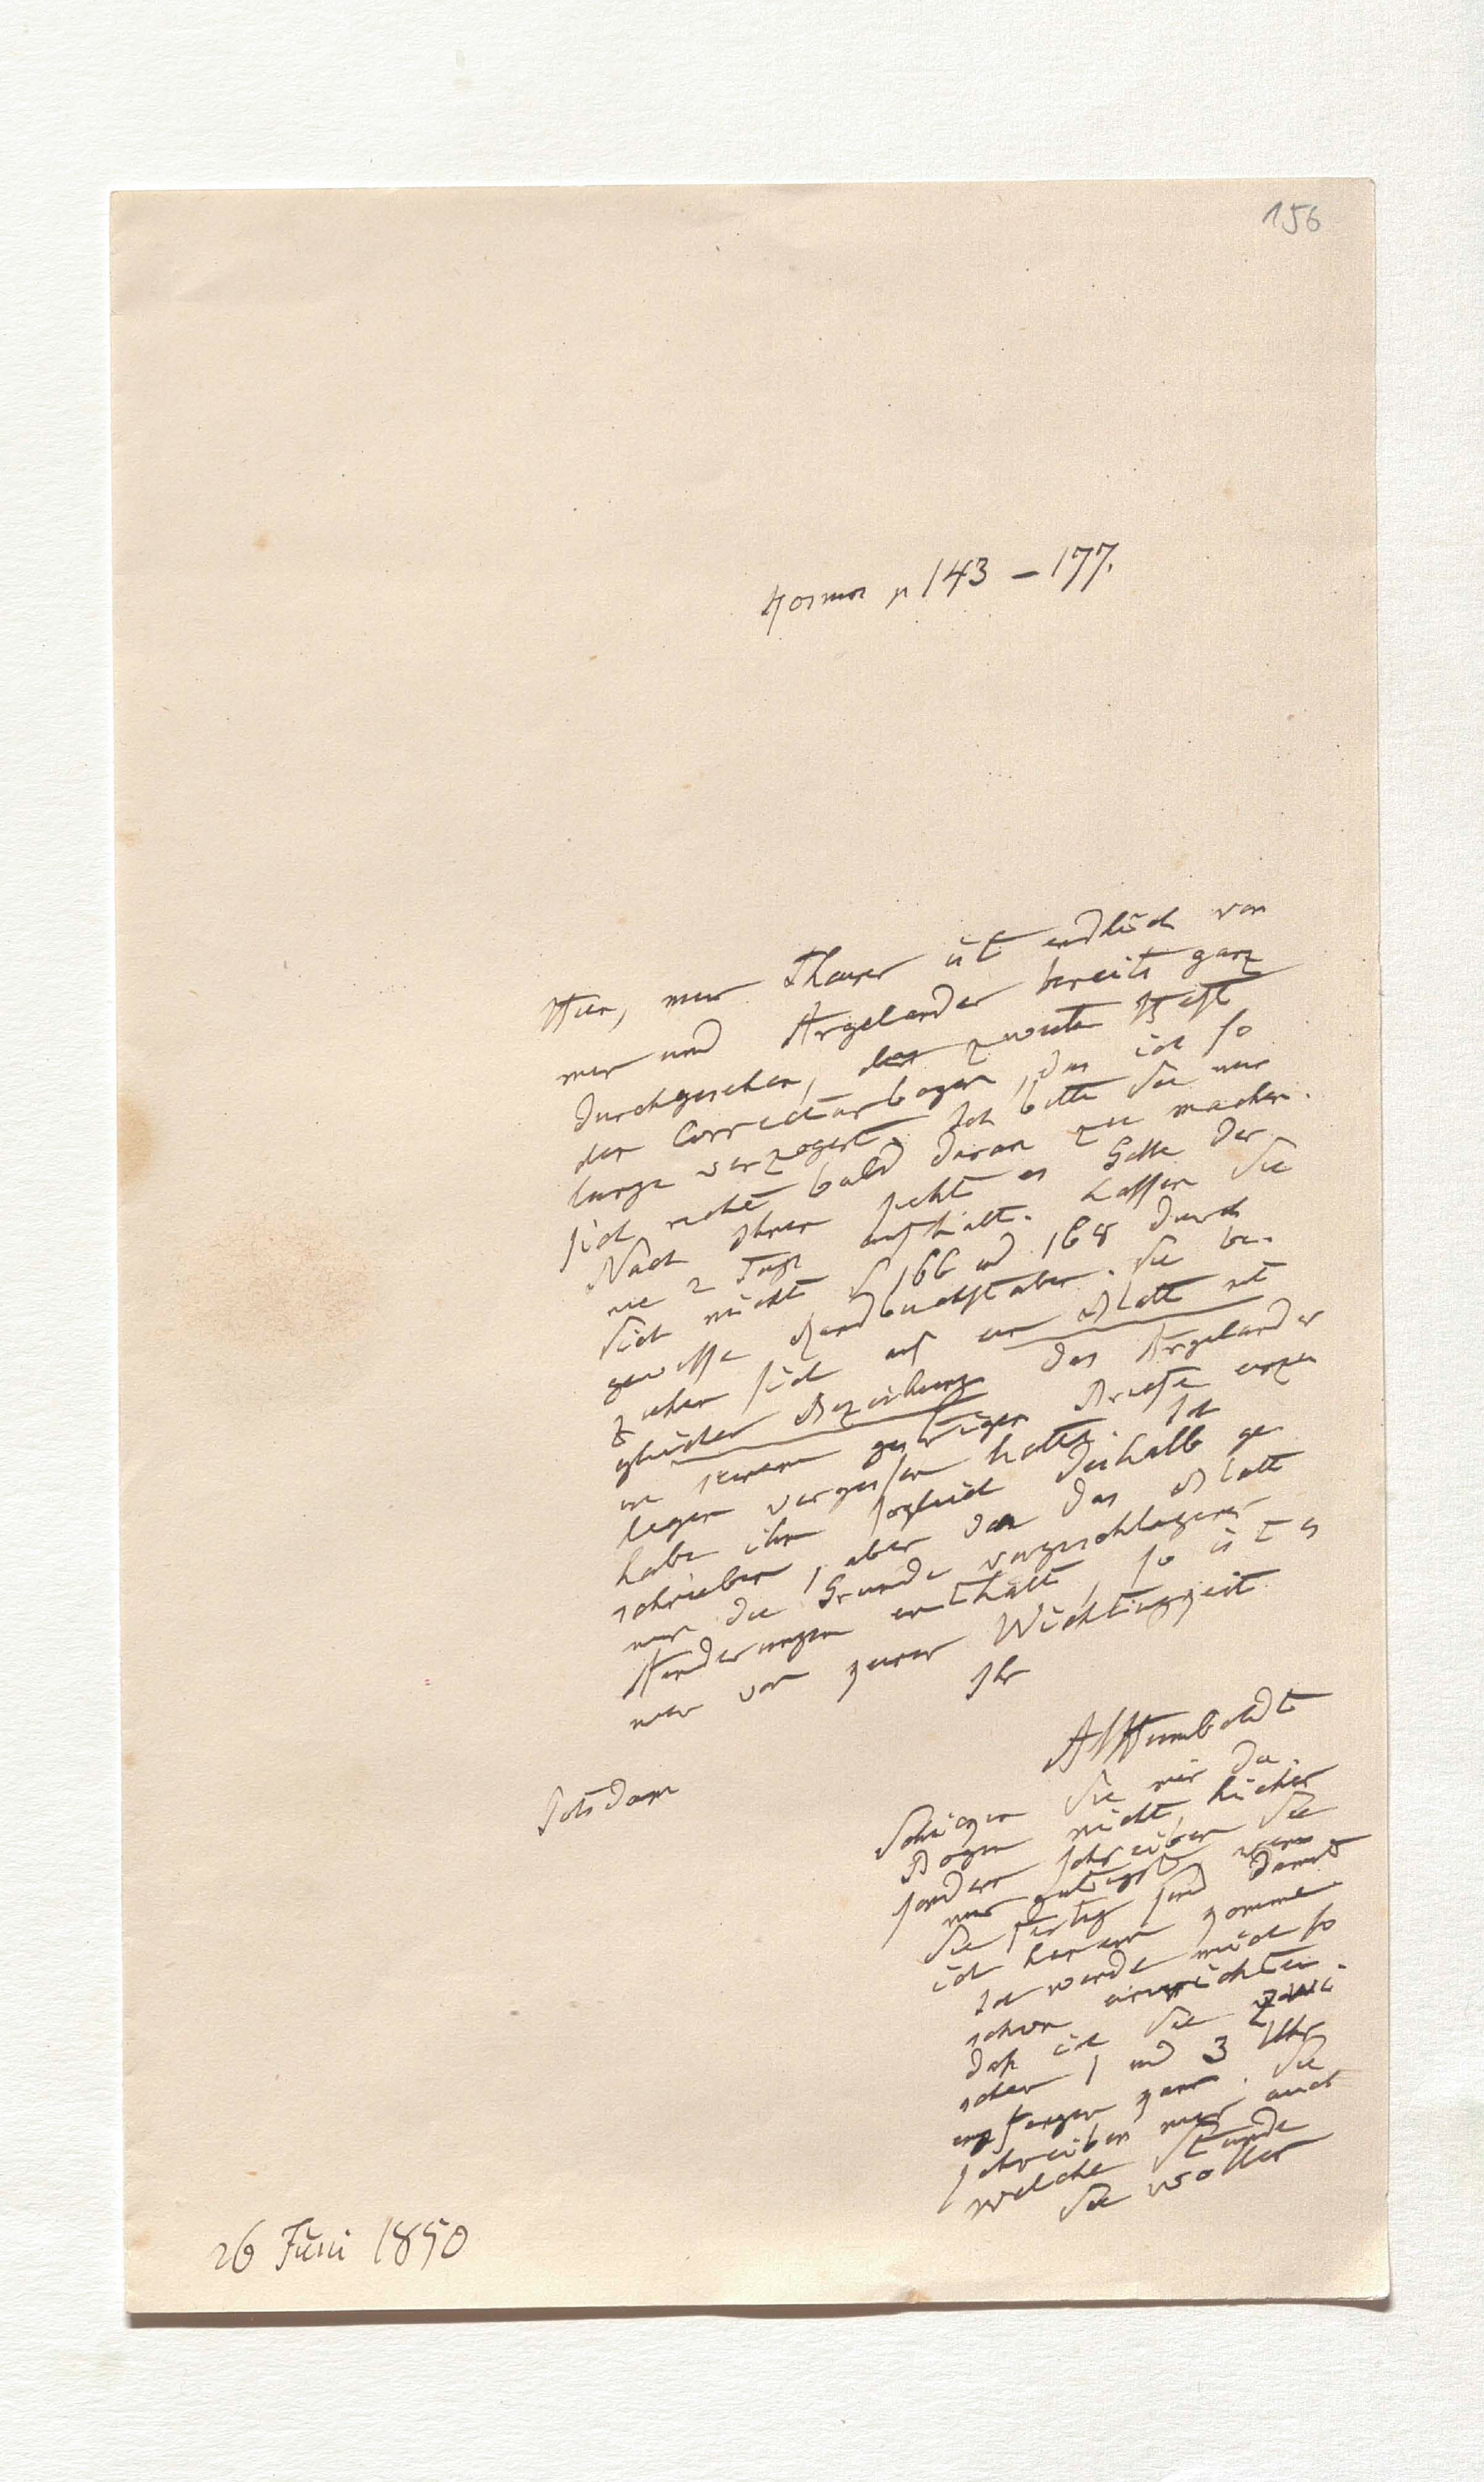 156
Kosmos p 143 – 177.
Hier, mein Theurer ist endlich von
mir und Argelander bereits ganz
durchgesehen, das zweite Heft
der Correcturbogen, das ich so
lange verzögert. Ich bitte Sie nur
sich recht bald daran zu machen.
Nach Ihnen sieht es Galle der
nie 2 Tage aufhält. Lassen Sie
Sich nicht S 166 und 168 durch
gewisse Handbuchstaben. Sie be-
ziehen sich auf ein Blatt mit
gleicher Bezeichnung das Argelander
in seinem gestrigen Briefe einzu
legen vergessen hatte. Ich
habe ihm sogleich deshalb ge
schrieben, aber da das Blatt
nur die Gründe vorgeschlagener
Aenderungen enthält, so ist es
mir von keiner Wichtigkeit.
Ihr
AvHumboldt
Potsdam
Schicken Sie mir die
Bogen nicht hieher
sondern schreiben Sie
mir gütigst wenn
Sie fertig sind damit
ich herein komme
Ich werde mich so
schon einrichten
daß ich Sie zwi-
schen 1 und 3 Uhr
empfangen kann. Sie
schreiben mir auch
welche Stunde
Sie wollen
26 Juni 1850